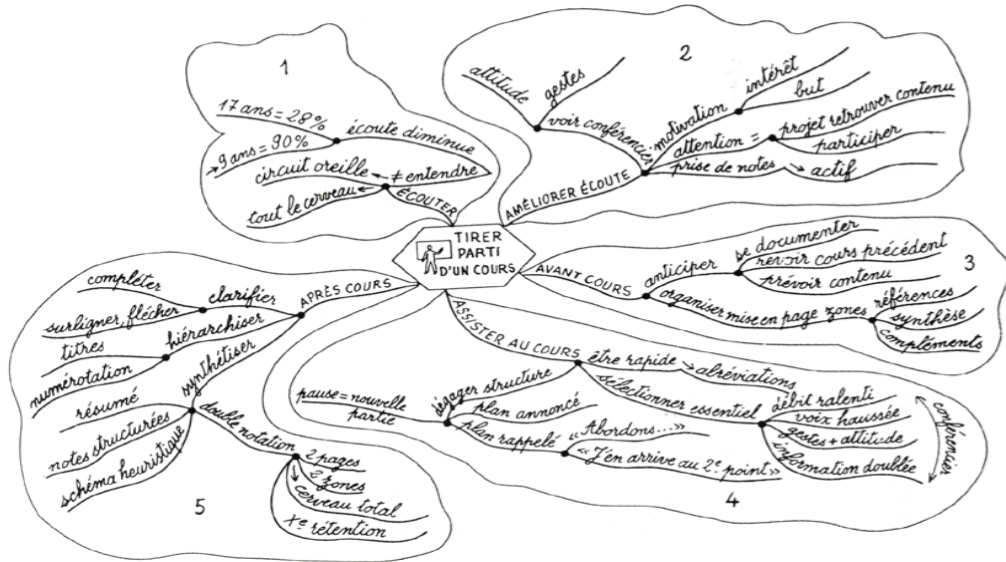 TIRER
PARTI
D'UN COURS
1
ÉCOUTER
écoute diminue
17 ans = 28%
→ 9 ans = 90%
≠ entendre
circuit oreille ←
tout le cerveau ←
2
AMÉLIORER ÉCOUTE
voir conférencier
attitude
gestes
motivation
intérêt
but
attention =
projet retrouver contenu
participer
prise de notes → actif
3
AVANT COURS
anticiper
se documenter
revoir cours précédent
prévoir contenu
organiser mise en page zones
références
synthèse
compléments
4
ASSISTER AU COURS
être rapide → abréviations
sélectionner essentiel
débit ralenti
voix haussée
gestes + attitude
information doublée
conférencier
dégager structure
pause = nouvelle
partie
plan annoncé
plan rappelé
« Abordons... »
« J'en arrive au 2e point »
5
APRÈS COURS
clarifier
compléter
surligner, flécher
hiérarchiser
titres
numérotation
synthétiser
résumé
notes structurées
schéma heuristique
double notation
2 pages
zones
→ cerveau total
rétention